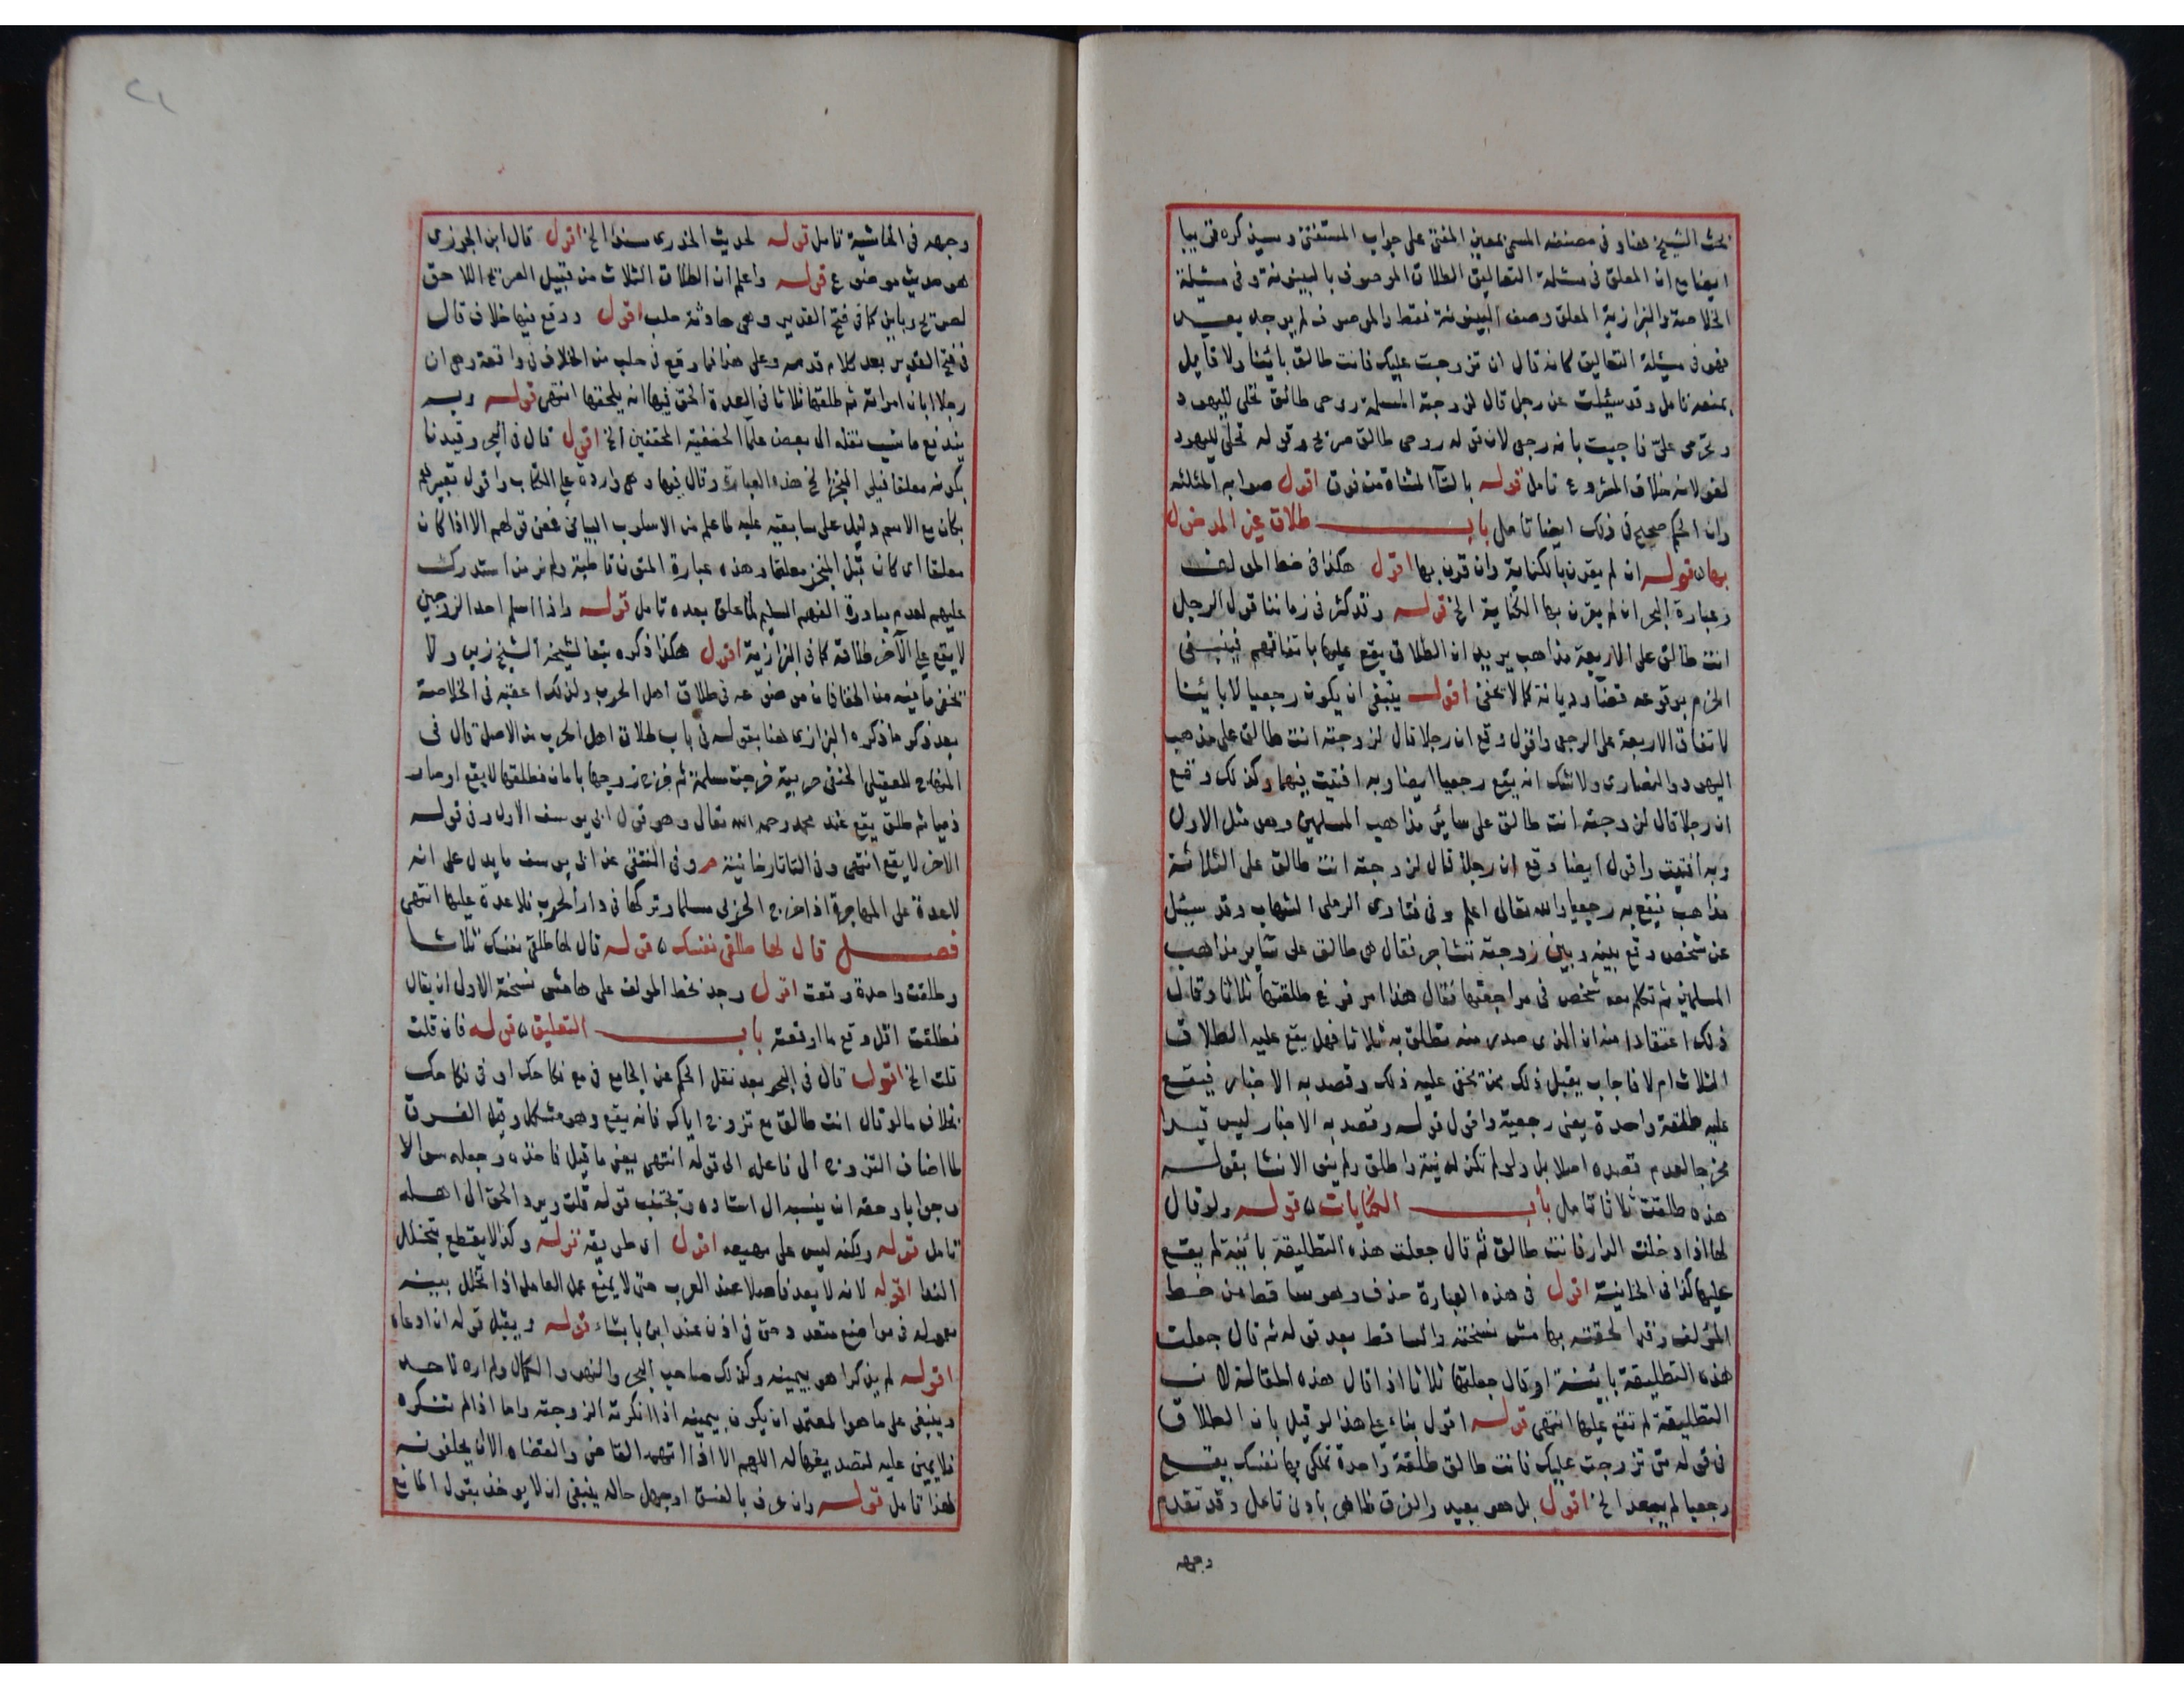 بحث الشيخ هنا وفى مصنفه المسمى بمعين المفتى على جواب المستفتى وسيذكره قريبا
ايضا مع ان المعلق فى مسئلة التعاليق الطلاق الموصوف بالبينونة وفى مسئلة
الخلاصة والبزازية المعلق وصف البينونة فقط والموصوف لم يوجد بعد
فهو فى مسئلة التعاليق كانه قال ان تزوجت عليك فانت طالق بائنا ولا قايل
بمنعه تامل وقد سئلت عن رجل قال لزوجته المسلمة روحى طالق تحلى لليهود
وتحرمى علىّ فاجبت بانه رجعى لان قوله روحى طالق صريح وقوله تحلى لليهود
لغو لانه خلاف المشروع تامل قوله بالتآ المثناة من فوق اقول صوابه المثلثه
وان الحكم صحيح فى ذلك ايضا تامل باب طلاق غير المدخول
بها قوله ان لم يقرن بالكناية وان قرن بها اقول هكذا فى خط المولف
وعبارة البحر ان لم يقرن بها الكناية الخ قوله وقد كثر فى زماننا قول الرجل
انت طالق على الاربعة مذاهب يريد ان الطلاق يقع عليها باتفاقهم فينبغى
الجزم بوقوعه قضآ وديانة كما لا يخفى اقول ينبغى ان يكون رجعيا لا بائنا
لاتفاق الاربعة على الرجعى واقول وقع ان رجلا قال لزوجته انت طالق على مذهب
اليهود والنصارى ولا شك انه يقع رجعيا ايضا وبه افتيت فيهما وكذلك وقع
ان رجلا قال لزوجته انت طالق على سائر مذاهب المسلمين وهى مثل الاول
وبه افتيت واقول ايضا وقع ان رجلا قال لزوجته انت طالق على الثلاثة
مذاهب فيقع به رجعيا والله تعالى اعلم وفى فتاوى الرملى الشهاب وقد سئل
عن شخص وقع بينه وبين زوجته تشاجر فقال هى طالق على ساير مذاهب
المسلمين ثم تكلم معه شخص فى مراجعتها فقال هذا امر فرغ طلقتها ثلاثا وقال
ذلك اعتقادا منه ان الذى صدر منه تطلق به ثلاثا فهل يقع عليه الطلاق
الثلاث ام لا فاجاب يقبل ذلك ممن يخفى عليه ذلك وقصد به الاخبار فيقع
عليه طلقة واحدة يعنى رجعية واقول قوله وقصد به الاخبار ليس قيدا
مخرجا لعدم قصده اصلا بل ولو لم تكن له نية واطلق ولم ينو الانشا بقوله
هذه طلقت ثلاثا تامل باب الكنايات قوله ولو قال
لها اذا دخلت الدار فانت طالق ثم قال جعلت هذه التطليقة بائنة لم يقع
عليها كذا فى الخانية اقول فى هذه العبارة حذف وهو ساقط من خط
المؤلف وقد الحقته بهامش نسخته والساقط بعد قوله ثم قال جعلت
هذه التطليقة بائنة او قال جعلتها ثلاثا اذا قال هذه المقالة لان
التطليقة لم تقع عليها انتهى قوله اقول بناء على هذا لو قيل بان الطلاق
فى قوله متى تزوجت عليك فانت طالق طلقة واحدة تملكى بها نفسك يقع
رجعيا لم يبعد الخ اقول بل هو بعيد والفرق ظاهر بادنى تامل وقد تقدم
وجهه
٢١
وجهه فى الحاشية تامل قوله لحديث المذورى سندا الخ اقول قال ابن الجوزى
هو حديث موضوع قوله واعلم ان الطلاق الثلاث من قبيل الصريح اللاحق
لصريح وباين كما فى فتح القدير وهى حادثة حلب اقول ووقع فيها خلاف قال
فى فتح القدير بعد كلام قدمه وعلى هذا فما وقع فى حلب من الخلاف فى واقعة وهى ان
رجلا ابان امراته ثم طلقها ثلاثا فى العدة الحق فيها انه يلحقها انتهى قوله وبه
يندفع ما نسب نقله الى بعض علمآ الحنفية المحققين الخ اقول قال فى البحر وقيدنا
بكونه معلقا قبل المنجز الخ هذه العبارة وقال فيها وهى واردة على الكتاب واقول تعبيرهم
بكان مع الاسم دليل على سابقيته عليه لما علم من الاسلوب البيانى فمعنى قولهم الا اذا كان
معلقا اى كان قبل المنجز معلقا وهذه عبارة المتون قاطبة ولم نر من استدرك
عليهم لعدم مبادرة الفهم السليم لما علق بعده تامل قوله واذا اسلم احد الزوجين
لا يقع على الآخر طلاقه كما فى البزازية اقول هكذا ذكره تبعا لشيخه الشيخ زين ولا
يخفى ما فيه من الخفا فان موضوعه فى طلاق اهل الحرب ولذلك اعقبه فى الخلاصة
بعد ذكر ما ذكره البزازى هنا بقوله فى باب طلاق اهل الحرب من الاصل قال فى
المنهاج للعقيلى الحنفى حربية خرجت مسلمة ثم خرج زوجها بامان فطلقها لا يقع او صار
ذميا ثم طلق يقع عند محمد رحمه الله تعالى وهو قول ابى يوسف الاول وفى قوله
الاخر لا يقع انتهى وفى التاتارخانية م وفى المنتقى عن ابى يوسف ما يدل على انه
لا عدة على المهاجرة اذا خرج الحربى مسلما وتركها فى دار الحرب فلا عدة عليها انتهى
فصل قال لها طلقى نفسك قوله قال لها طلقى نفسك ثلاثا
وطلقت واحدة وقعت اقول وجد بخط المولف على هامش نسخته الاولى ان يقال
فطلقت اقل وقع ما اوقعته باب التعليق قوله فان قلت
قلت الخ اقول قال فى البحر بعد نقل الحكم عن الجامع فى مع نكاحك او فى نكاحك
بخلاف ما لو قال انت طالق مع تزوجى اياك فانه يقع وهو مشكل وقيل الفرق
لما اضاف التزوج الى فاعله الى قوله انتهى يعنى ما قيل فاخذه وجعله سوالا
وجوابا وحقه ان ينسبه الى استاده وتجتنب قوله قلت ويرد الحق الى اهله
تامل قوله ولكنه ليس على مهيعه اقول اى طريقه قوله وكذا لا يقطع بتخلل
الندا اقوله لانه لا يعد فاصلا عند العرب حتى لا يمنع عمل العامل اذا تخلل بينه
معموله فى مواضع متعدد حتى فى اذن عند ابن بابشاء قوله ويقبل قوله ان ادعاه
اقوله لم يذكر اهو بيمينه وكذلك صاحب البحر والنهر والكمال ولم اره لاحد
وينبغى على ما هو المعتمد ان يكون بيمينه اذا انكرته الزوجة واما اذا لم تنكره
فلا يمين عليه لتصديقها له اللهم الا اذا اتهمه القاضى والقضاه الان يحلفونه
لهذا تامل قوله وان عرف بالفسق او جهل حاله ينبغى ان لا يوخذ بقول المانع